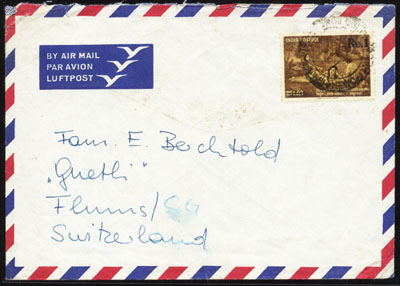 BY AIR MAIL
PAR AVION
LUFTPOST
INDIA POSTAGE
Fam. E. Bechtold
"Guetli"
Flums/SG
Switzerland